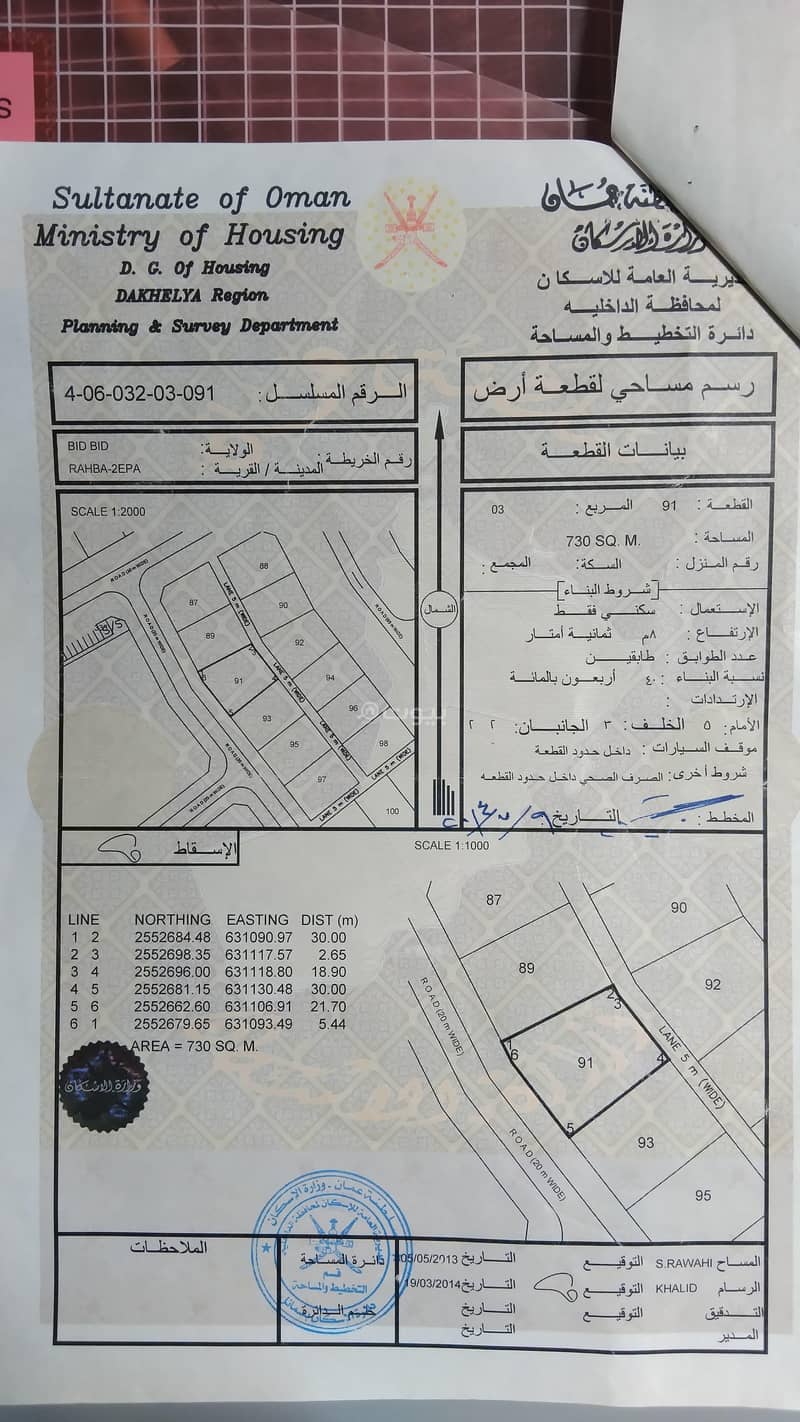 S
Sultanate of Oman
Ministry of Housing
D. G. Of Housing
DAKHELYA Region
Planning & Survey Department
وزارة الإسكان
المديرية العامة للاسكان
لمحافظة الداخليه
دائرة التخطيط والمساحة
الرقم المسلسل: 4-06-032-03-091
رسم مساحي لقطعة أرض
رقم الخريطة:
الولاية: BID BID
المدينة / القرية: RAHBA-2EPA
بيانات القطعة
القطعة: 91 المربع: 03
المساحة: 730 SQ. M.
رقم المنزل: السكة: المجمع:
[شروط البناء]
الإستعمال: سكني فقط
الإرتفاع: ٨م ثمانية أمتار
عدد الطوابق: طابقين
نسبة البناء: ٤٠ أربعون بالمائة
الإرتدادات:
الأمام: ٥ الخلف: ٣ الجانبان: ٢ ٢
موقف السيارات: داخل حدود القطعة
شروط أخرى: الصرف الصحي داخل حدود القطعه
المخطط: التاريخ
الشمال
SCALE 1:2000
ROAD (20 m WIDE)
88
87
LANE 5 m (WIDE)
90
89
92
91
94
93
96
95
98
97
100
LANE 5 m (WIDE)
LANE 5 m (WIDE)
LANE 5 m (WIDE)
LANE 5 m (WIDE)
S/S
بيوت
الإسقاط
SCALE 1:1000
LINE NORTHING EASTING DIST (m)
1 2 2552684.48 631090.97 30.00
2 3 2552698.35 631117.57 2.65
3 4 2552696.00 631118.80 18.90
4 5 2552681.15 631130.48 30.00
5 6 2552662.60 631106.91 21.70
6 1 2552679.65 631093.49 5.44
AREA = 730 SQ. M.
87
90
89
92
ROAD (20 m WIDE)
2
3
LANE 5 m (WIDE)
1
6
91
4
5
93
ROAD (20 m WIDE)
95
وزارة الاسكان
الملاحظات
دائرة المساحة
قسم
التخطيط والمساحة
ختم الدائرة
المساح S.RAWAHI التوقيع التاريخ 05/05/2013
الرسام KHALID التوقيع التاريخ 19/03/2014
التدقيق التوقيع التاريخ
المدير التاريخ